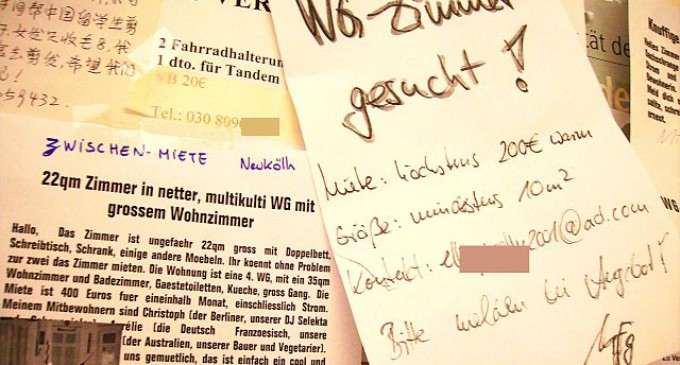 间帮中国留学生剪
059432.
VER
2 Fahrradhalterun
1 dto. für Tandem
VB 20€
Tel.: 030 809
ZWISCHEN-MIETE Neukölln
22qm Zimmer in netter, multikulti WG mit
grossem Wohnzimmer
Hallo, Das Zimmer ist ungefaehr 22qm gross mit Doppelbett,
Schreibtisch, Schrank, einige andere Moebeln. Ihr koennt ohne Problem
zur zwei das Zimmer mieten. Die Wohnung ist eine 4. WG, mit ein 35qm
Wohnzimmer und Badezimmer, Gaestetoiletten, Kueche, gross Gang. Die
Miete ist 400 Euros fuer eineinhalb Monat, einschliesslich Strom.
Meinem Mitbewohnern sind Christoph (der Berliner, unserer DJ Selekta
élie (die Deutsch Franzoesisch, unsere
(der Australien, unserer Bauer und Vegetarier).
uns gemuetlich, das ist einfach ein cool und
WG-Zimmer
gesucht!
Miete: höchstens 200€ warm
Größe: mindestens 10m²
Kontakt: 2001@aol.com
Bitte melden bei Angebot!
tät de
Knuffige
WG